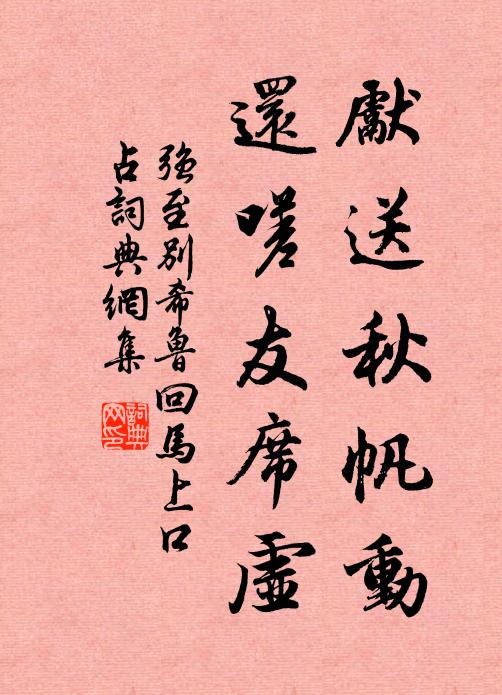 獻送秋帆動
還嗟友席虛
強至別希魯回馬上口
占詞典網集
詞典
网印